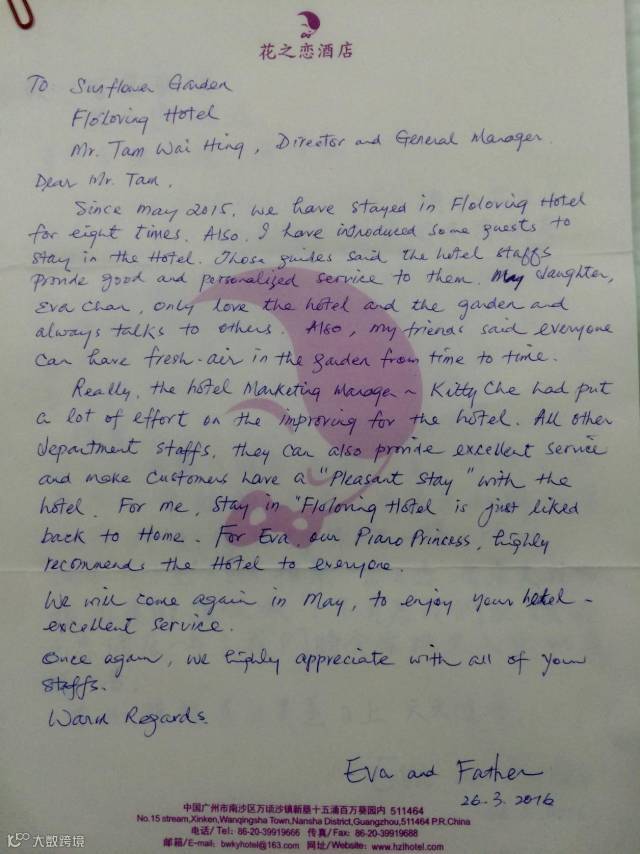 花之恋酒店
To Sunflower Garden
Floloving Hotel
Mr. Tam Wai Hing, Director and General Manager.
Dear Mr. Tam,
Since may 2015, we have stayed in Floloving Hotel
for eight times. Also, I have introduced some guests to
stay in the Hotel. Those guides said the hotel staffs
provide good and personalized service to them. May daughter,
Eva Chan, only love the hotel and the garden and
always talks to others. Also, my friends said everyone
can have fresh-air in the garden from time to time.
Really, the hotel Marketing Manager ~ Kitty Che had put
a lot of effort on the improving for the hotel. All other
department staffs, they can also provide excellent service
and make customers have a "Pleasant Stay" with the
hotel. For me, stay in "Floloving Hotel is just liked
back to Home. For Eva, our Piano Princess, highly
recommends the Hotel to everyone.
We will come again in May, to enjoy your hotel -
excellent service.
Once again, we highly appreciate with all of your
staffs.
Warm Regards.
Eva and Father
26.3.2016
中国广州市南沙区万顷沙镇新垦十五涌百万葵园内 511464
No.15 stream,Xinken,Wanqingsha Town,Nansha District,Guangzhou,511464 P.R.China
电话/Tel: 86-20-39919666 传真/Fax: 86-20-39919688
邮箱/E-mail: bwkyhotel@163.com 网址/Website: www.hzlhotel.com
大数跨境